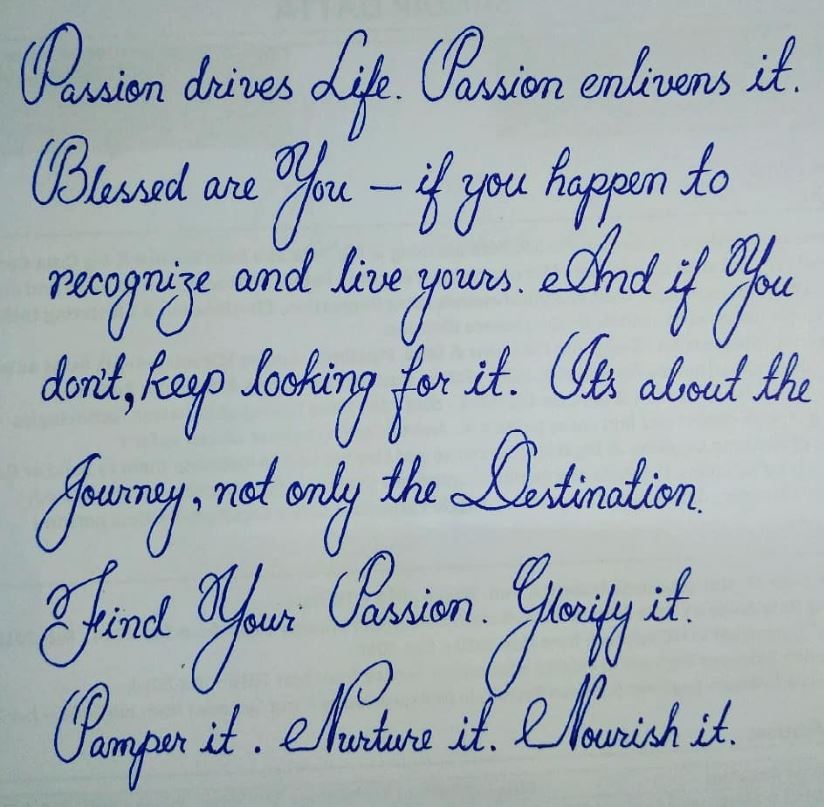 Passion drives Life. Passion enlivens it.
Blessed are You – if you happen to
recognize and live yours. And if You
don't, keep looking for it. It's about the
Journey, not only the Destination.
Find Your Passion. Glorify it.
Pamper it. Nurture it. Nourish it.